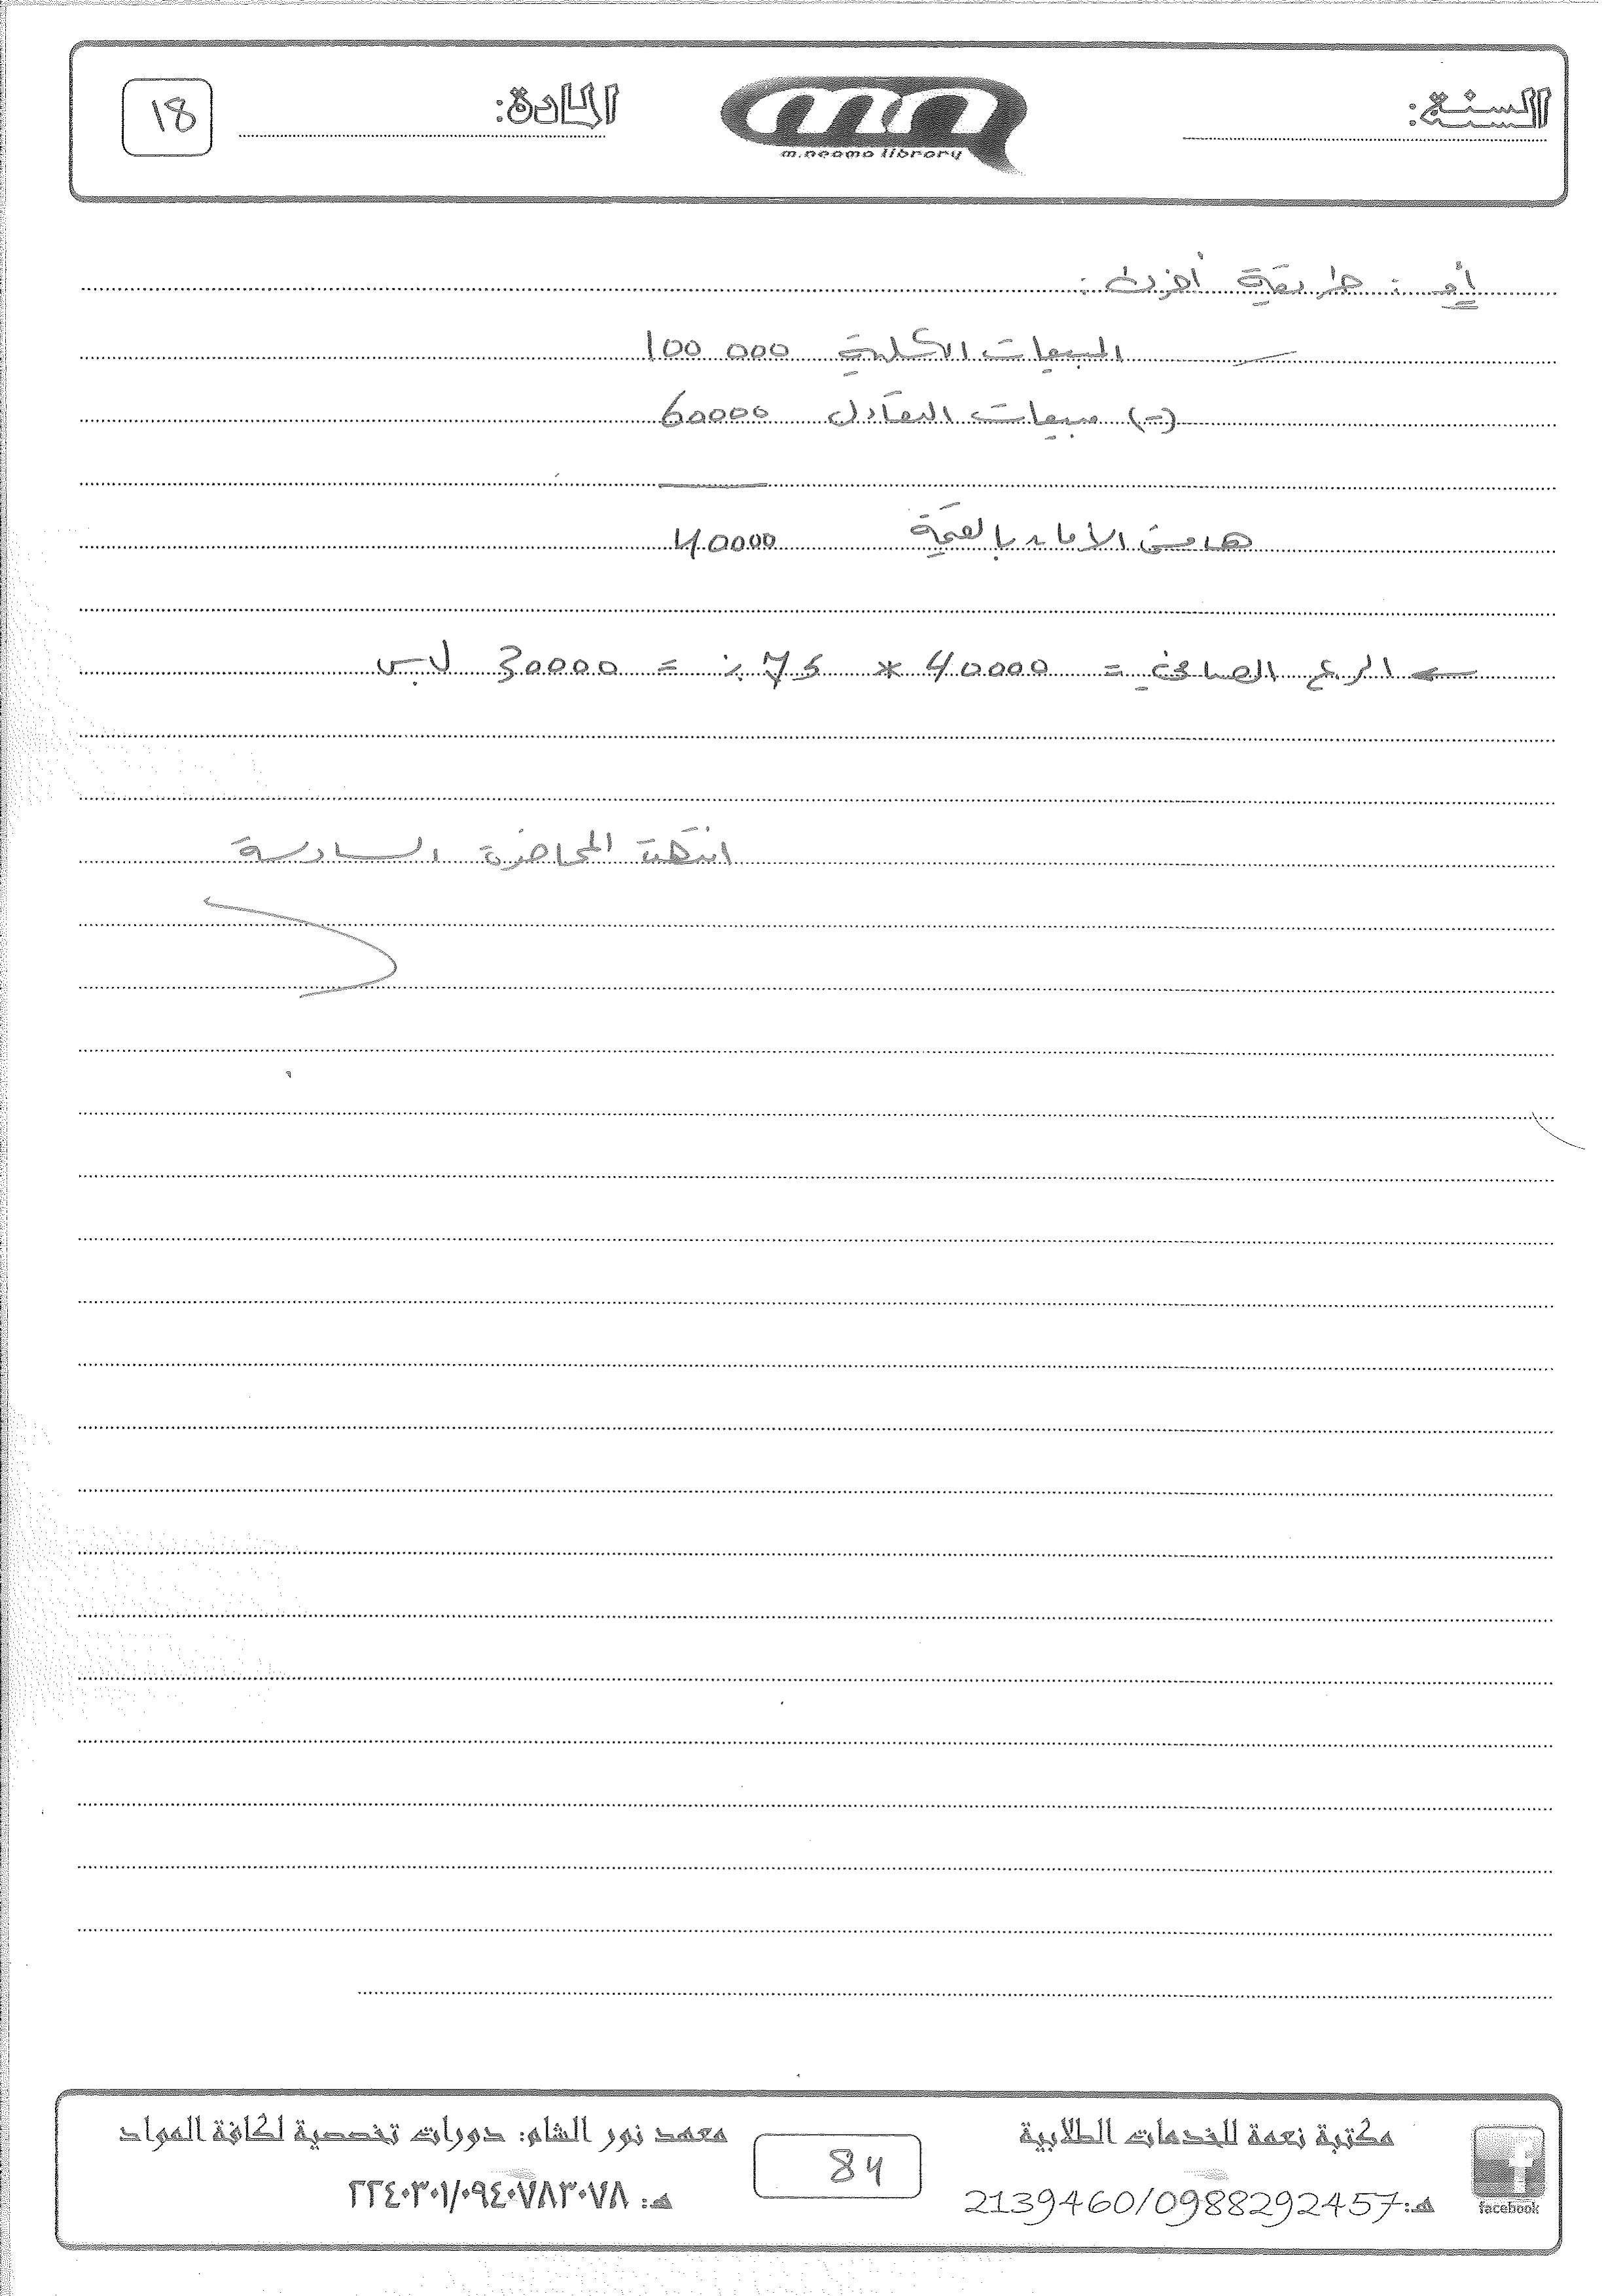 السنة:
m.neama library
المادة:
18
أو : طريقة أخرى :
المبيعات الكلية 100 000
(-) مبيعات التعادل 60000
هامش الأمان بالقيمة 40000
← الربح الصافي = 40000 * 75 % = 30000 ل.س
انتهت المحاضرة السادسة
facebook
مكتبة نعمة للخدمات الطلابية
هـ: 2139460/0988292457
84
معهد نور الشام: دورات تخصصية لكافة المواد
هـ: ٢٢٤٠٣٠١/٠٩٤٠٧٨٣٠٧٨